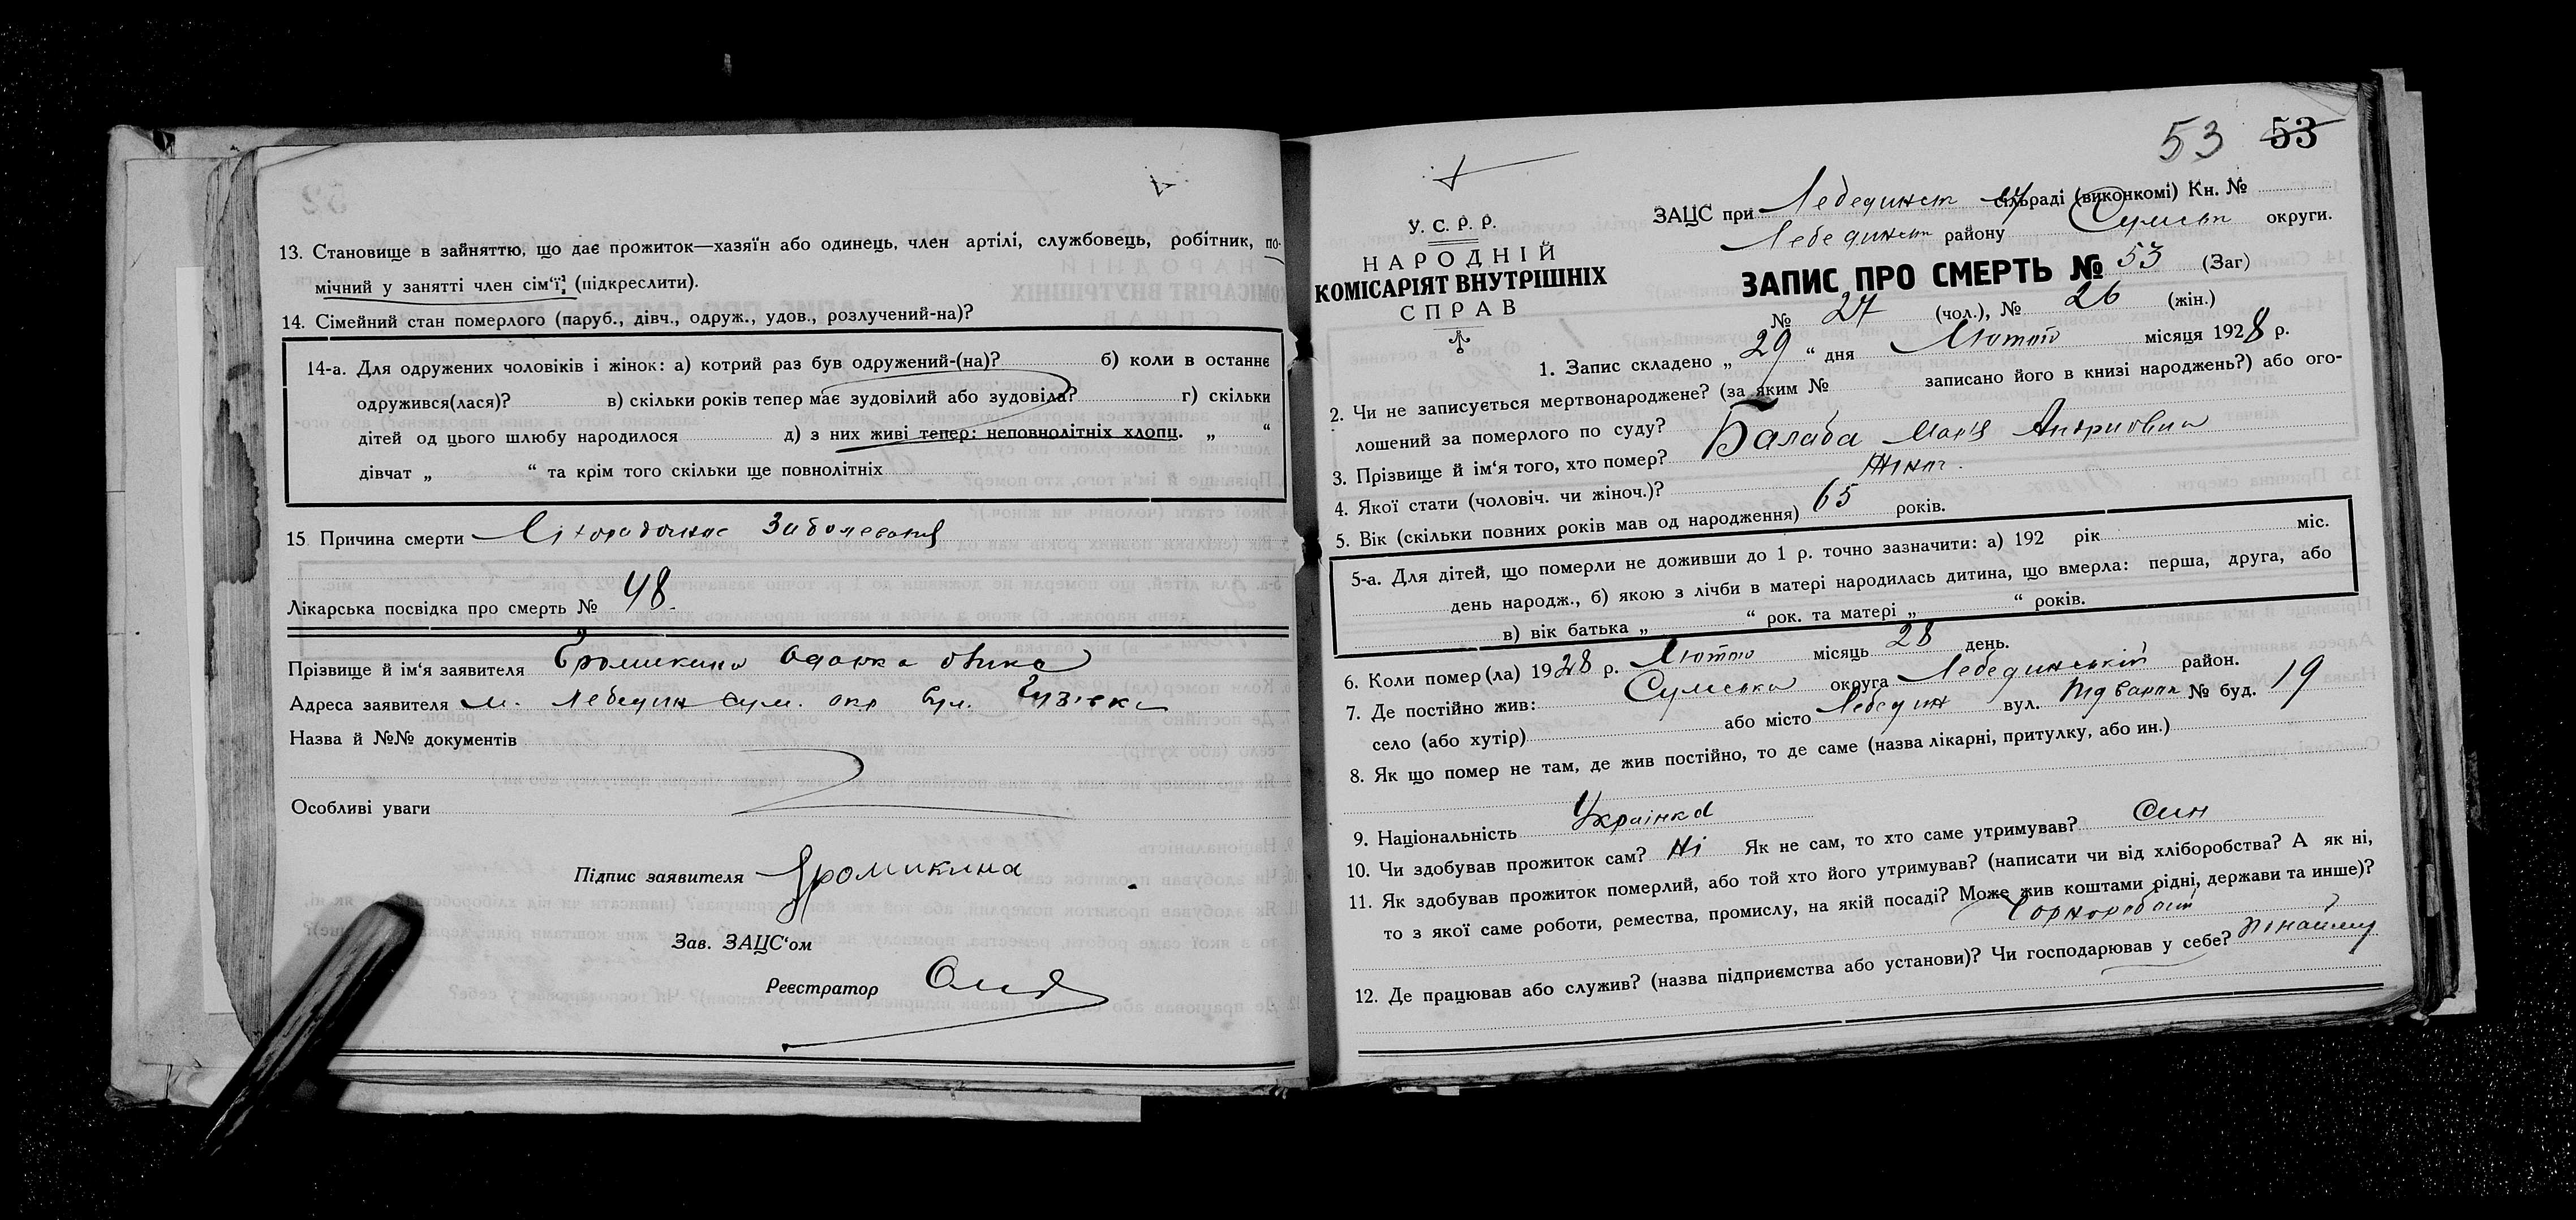 13. Становище в зайняттю, що дає прожиток—хазяїн або одинець, член артілі, службовець, робітник, по-
мічний у занятті член сім‘ї; (підкреслити).
14. Сімейний стан померлого (паруб., дівч., одруж., удов., розлучений-на)?
14-а. Для одружених чоловіків і жінок: а) котрий раз був одружений-(на)? б) коли в останнє
одружився(лася)? в) скільки років тепер має зудовілий або зудовіла? г) скільки
дітей од цього шлюбу народилося д) з них живі тепер: неповнолітніх хлопц. „ “
дівчат „ “ та крім того скільки ще повнолітніх
15. Причина смерти
Лікарська посвідка про смерть № 48.
Прізвище й ім‘я заявителя
Адреса заявителя м. Лебедин Сум. окр вул.
Назва й №№ документів
Особливі уваги
Підпис заявителя Яромикина
Зав. ЗАЦС‘ом
Реєстратор
53 53
У. С. Р. Р.
НАРОДНІЙ
КОМІСАРІЯТ ВНУТРІШНІХ
СПРАВ
ЗАЦС при Лебединськ сільраді (виконкомі) Кн. №
Лебединськ району Сумськ округи.
ЗАПИС ПРО СМЕРТЬ № 53 (Заг)
№ 27 (чол.), № 26 (жін.)
1. Запис складено „ 29 “ дня Лютого місяця 1928 р.
2. Чи не записується мертвонароджене? (за яким № записано його в книзі народжень?) або ого-
лошений за померлого по суду?
3. Прізвище й ім‘я того, хто помер? Балаба Марія Андриовна
4. Якої стати (чоловіч. чи жіноч.)? Жіноч.
5. Вік (скільки повних років мав од народження) 65 років.
5-а. Для дітей, що померли не доживши до 1 р. точно зазначити: а) 192 рік міс.
день народж., б) якою з лічби в матері народилась дитина, що вмерла: перша, друга, або
в) вік батька „ “ рок. та матері „ “ років.
6. Коли помер(ла) 1928 р. Лютого місяць 28 день.
7. Де постійно жив: Сумська округа Лебединський район.
село (або хутір) або місто Лебедин вул. Підварок № буд. 19
8. Як що помер не там, де жив постійно, то де саме (назва лікарні, притулку, або ин.)
9. Національність Українка
10. Чи здобував прожиток сам? Ні Як не сам, то хто саме утримував? син
11. Як здобував прожиток померлий, або той хто його утримував? (написати чи від хліборобства? А як ні,
то з якої саме роботи, ремества, промислу, на якій посаді? Може жив коштами рідні, держави та инше)?
Чорноробочий
12. Де працював або служив? (назва підприємства або установи)? Чи господарював у себе? по найму